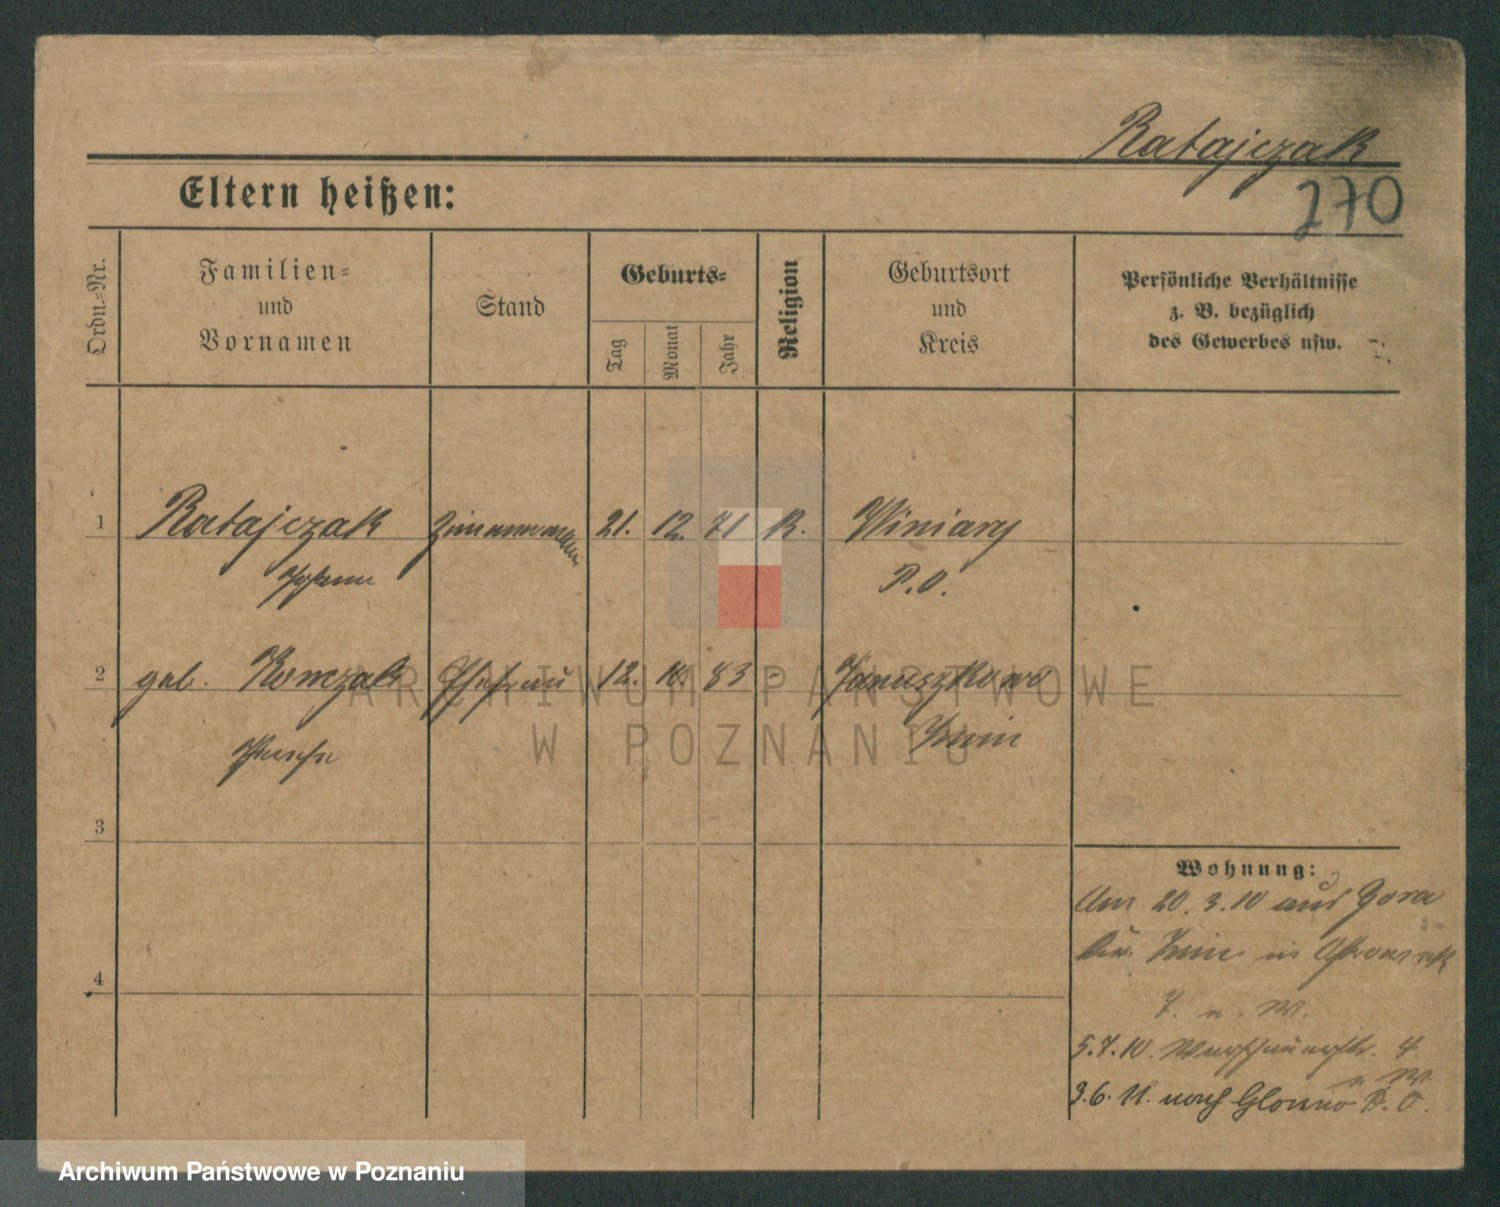 Ratajczak
270
Eltern heißen:
Ordn.-Nr.
Familien-
und
Vornamen
Stand
Geburts-
Tag
Monat
Jahr
Religion
Geburtsort
und
Kreis
Persönliche Verhältnisse
z. B. bezüglich
des Gewerbes usw.
1 Ratajczak Zimmermann 21. 12. 71 K. Winiary
Johann P. O.
2 geb. Konczak Ehefrau 12. 10. 83 - Januszkowo
Znin
3
4
Wohnung:
Am 20.3.10 aus Gora
Kr. Znin in
7. n. W.
5.7.10. Warschauerstr. 4.
n. W.
3.6.11. nach Glowno P. O.
ARCHIWUM PAŃSTWOWE
W POZNANIU
Archiwum Państwowe w Poznaniu